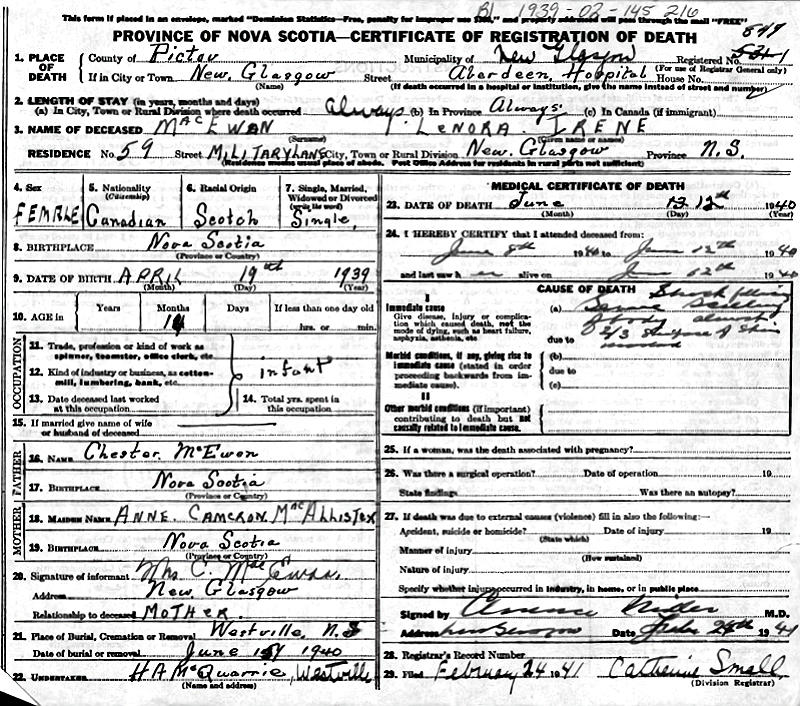 B1 1939-02-145 216
This form if placed in an envelope, marked "Dominion Statistics—Free, penalty for improper use $300," and properly addressed will pass through the mail "FREE"
PROVINCE OF NOVA SCOTIA—CERTIFICATE OF REGISTRATION OF DEATH
1. PLACE OF DEATH
County of Pictou Municipality of New Glasgow Registered No.
(For use of Registrar General only)
If in City or Town New. Glasgow Street Aberdeen Hospital House No.
(Name) (If death occurred in a hospital or institution, give the name instead of street and number)
2. LENGTH OF STAY (in years, months and days)
(a) In City, Town or Rural Division where death occurred always (b) In Province Always. (c) In Canada (if immigrant)
3. NAME OF DECEASED MacEWAN LENORA. IRENE
(Surname) (Given name or names)
RESIDENCE No. 59 Street MILITARY LANE City, Town or Rural Division New. Glasgow Province N.S.
(Residence means usual place of abode. Post Office Address for residents in rural parts not sufficient)
4. Sex FEMALE
5. Nationality (Citizenship) Canadian
6. Racial Origin Scotch
7. Single, Married, Widowed or Divorced (write the word) Single,
8. BIRTHPLACE Nova Scotia
(Province or Country)
9. DATE OF BIRTH APRIL 19th 1939
(Month) (Day) (Year)
10. AGE in Years Months Days If less than one day old
14 hrs. or min.
OCCUPATION
11. Trade, profession or kind of work as spinner, teamster, office clerk, etc.
12. Kind of industry or business, as cotton-mill, lumbering, bank, etc. infant
13. Date deceased last worked at this occupation
14. Total yrs. spent in this occupation
15. If married give name of wife or husband of deceased
FATHER
16. NAME Chester McEwen
17. BIRTHPLACE Nova Scotia
(Province or Country)
MOTHER
18. MAIDEN NAME ANNE. CAMERON. MacALLISTER
19. BIRTHPLACE Nova Scotia
(Province or Country)
20. Signature of informant Mrs C. MacEwan,
Address New Glasgow
Relationship to deceased MOTHER.
21. Place of Burial, Cremation or Removal Westville, N.S
Date of burial or removal June 1940
22. UNDERTAKER H A McQuarrie, Westville
(Name and address)
MEDICAL CERTIFICATE OF DEATH
23. DATE OF DEATH June 12th 1940
(Month) (Day) (Year)
24. I HEREBY CERTIFY that I attended deceased from:
June 8th 1940 to June 12th 1940
and last saw h er alive on June 12th 1940
CAUSE OF DEATH
I
Immediate cause
Give disease, injury or complication which caused death, not the mode of dying, such as heart failure, asphyxia, asthenia, etc.
(a) Shock following
Severe Scalding
of body almost
due to 2/3 surface of skin
involved
Morbid conditions, if any, giving rise to immediate cause (stated in order proceeding backwards from immediate cause).
(b)
due to
(c)
II
Other morbid conditions (if important) contributing to death but not causally related to immediate cause.
25. If a woman, was the death associated with pregnancy?
26. Was there a surgical operation? Date of operation 19
State findings Was there an autopsy?
27. If death was due to external causes (violence) fill in also the following:—
Accident, suicide or homicide? Date of injury 19
(State which)
Manner of injury
(How sustained)
Nature of injury
Specify whether injury occurred in industry, in home, or in public place
Signed by Clarence Miller M.D.
Address New Glasgow Date Feb 24th 1941
28. Registrar's Record Number
29. Filed February 24 1941 Catherine Small
(Division Registrar)